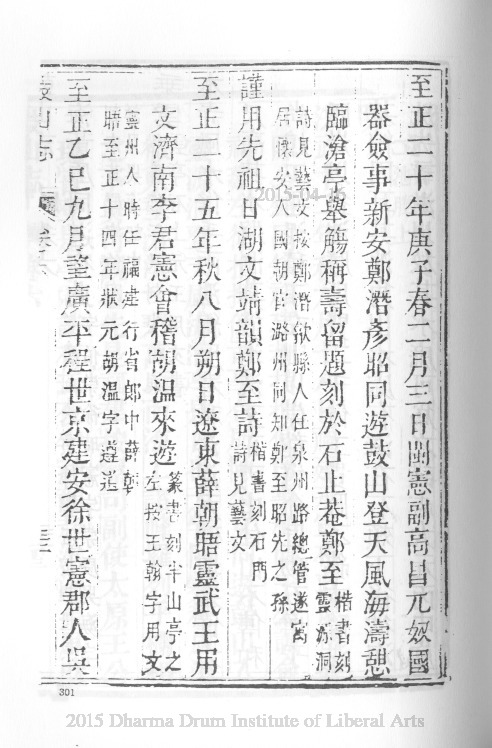 至正二十年庚子春二月三日閩憲副高昌元奴國
器僉事新安鄭潛彥昭同遊鼓山登天風海濤憩
臨滄亭舉觴稱壽留題刻於石止菴鄭至楷書刻靈源洞
詩見藝文按鄭潛歙縣人任泉州路總管遂寓
居懷安入國朝官潞州同知鄭至昭先之孫
謹用先祖日湖文靖韻鄭至詩楷書刻石門詩見藝文
至正二十五年秋八月朔日遼東薛朝晤靈武王用
文濟南李君憲會稽胡温來遊篆書刻半山亭之左按王翰字用文
靈州人時任福建行省郎中薛朝
晤至正十四年狀元胡温字遵道
至正乙巳九月望廣平程世京建安徐世憲郡人吳
鼓山志 卷六
三
301
2015-04-16
2015 Dharma Drum Institute of Liberal Arts